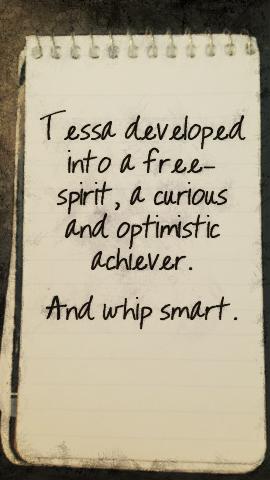 Tessa developed
into a free-
spirit, a curious
and optimistic
achiever.
And whip smart.